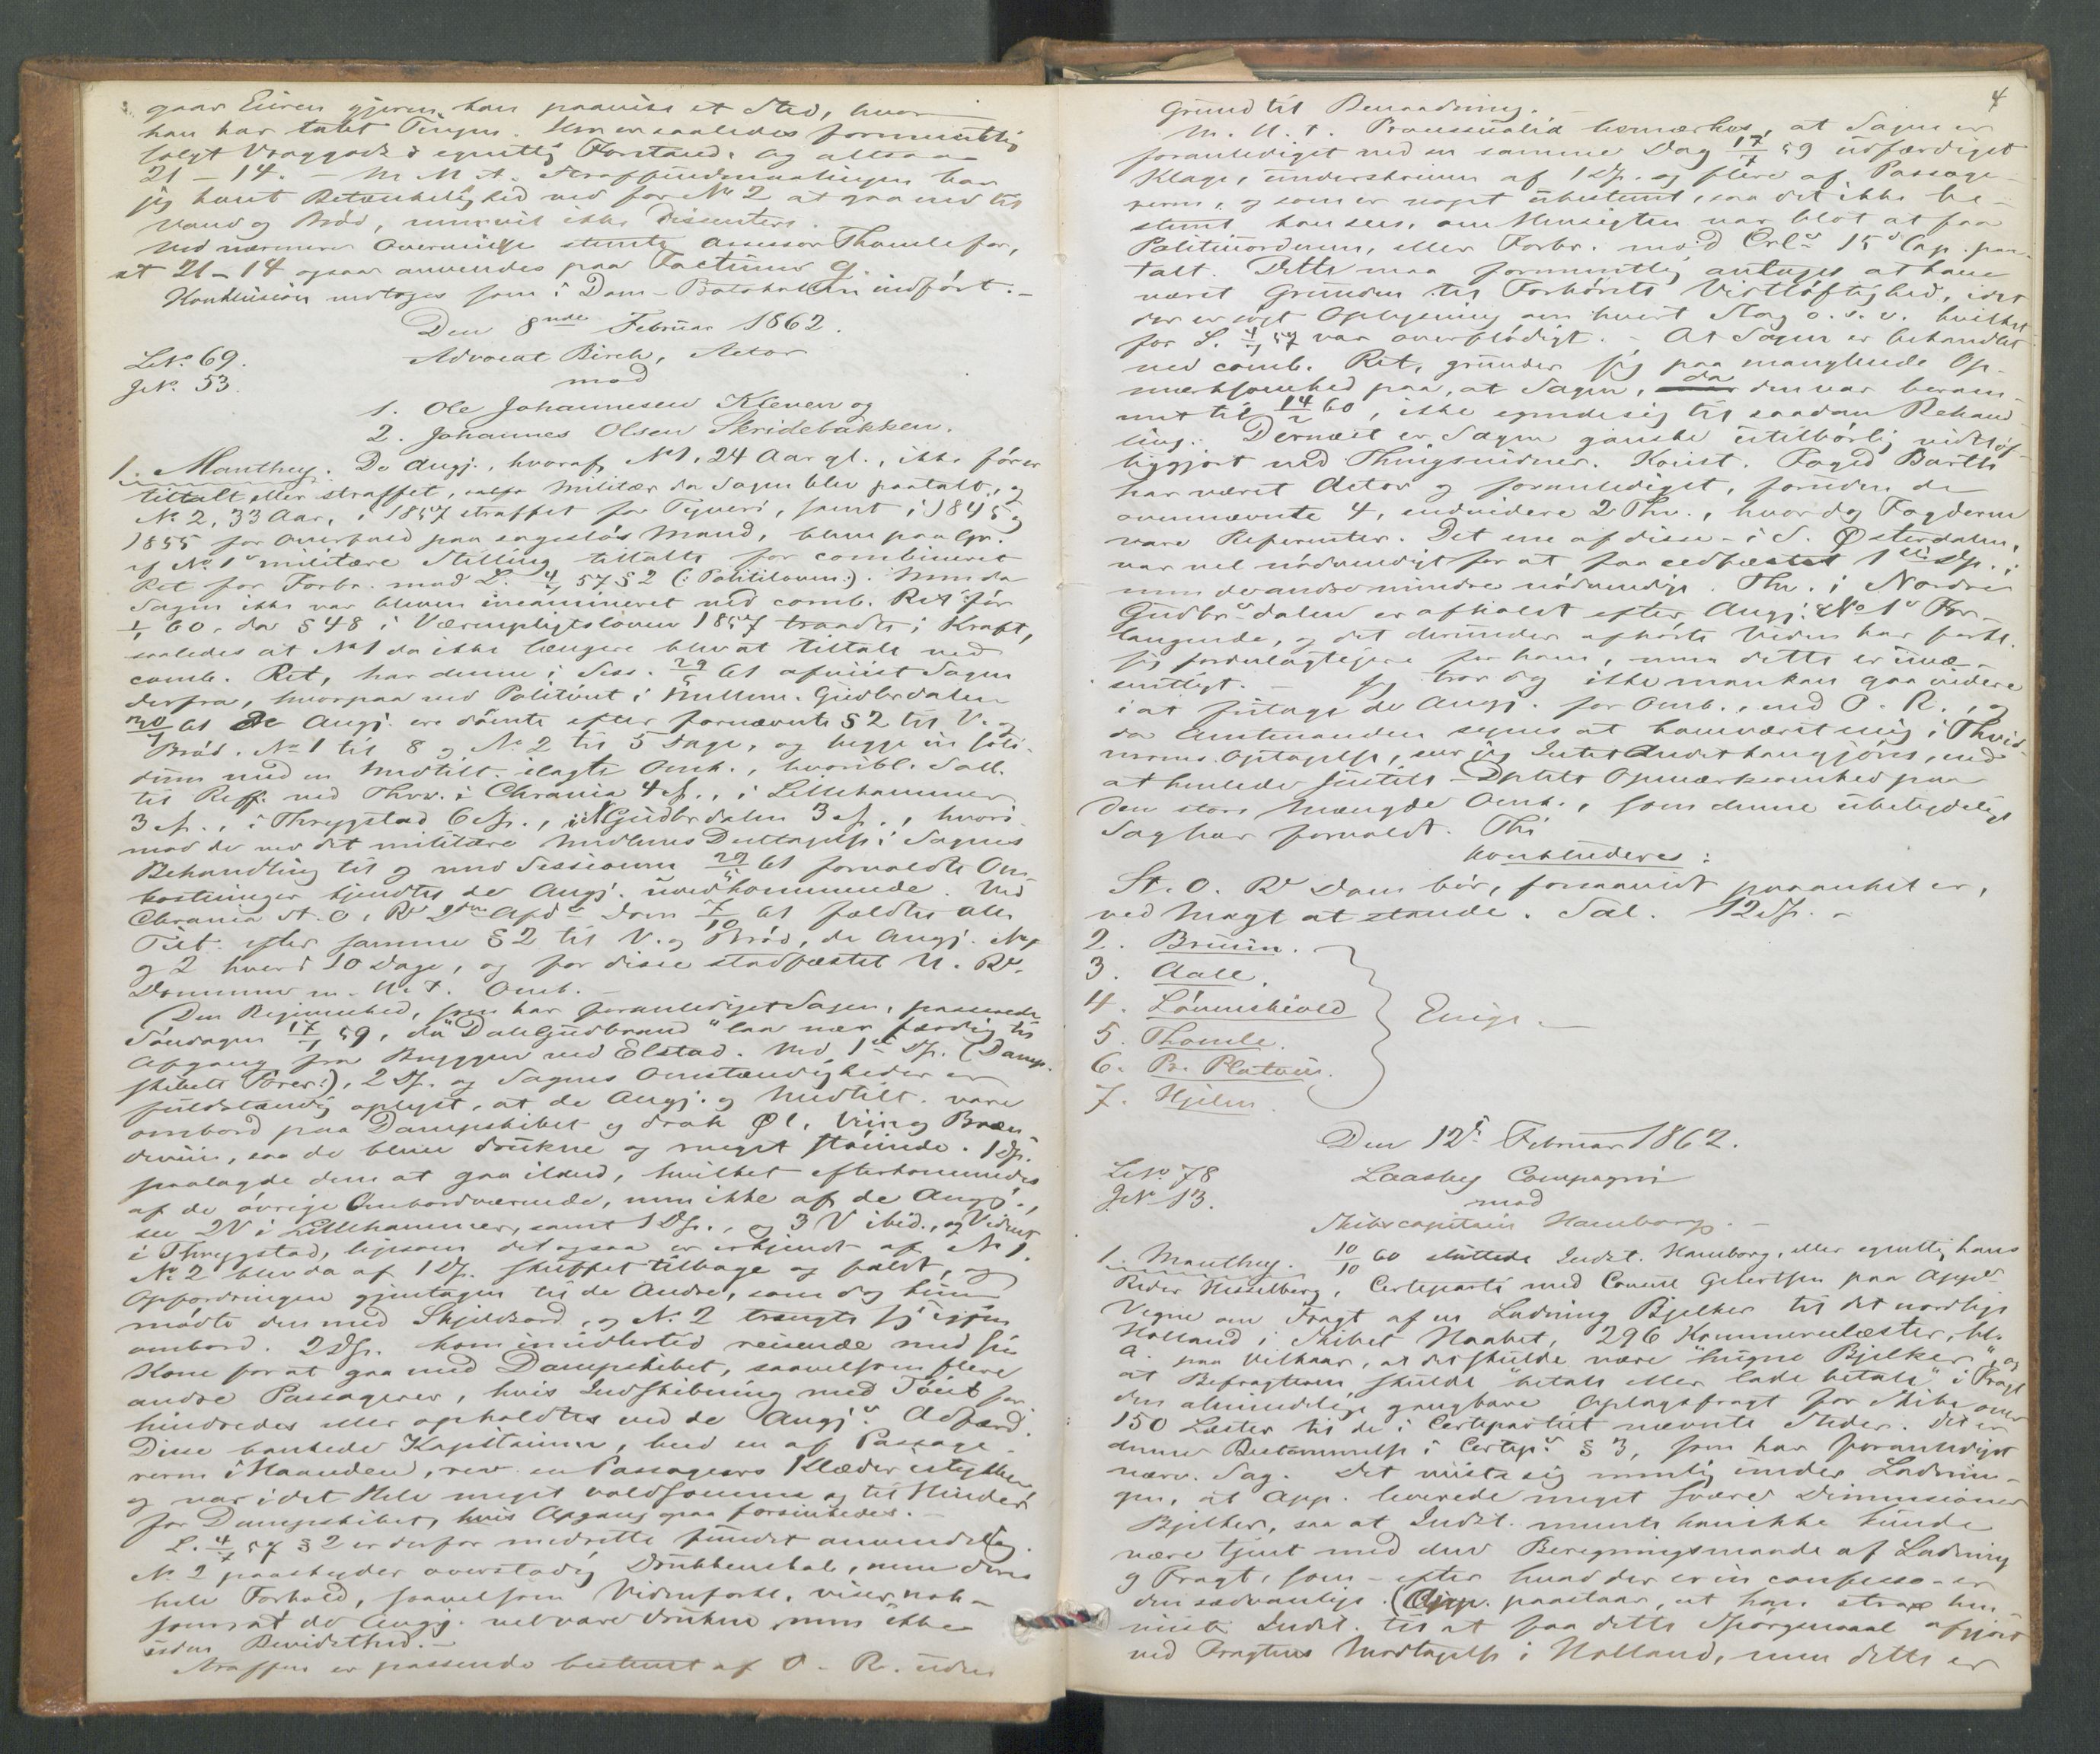 gaar Eieren gjerne han paavise et Sted, hvor
han har tabt Tingen. Um en saaledes formentlig
solgt Vraggods i egentlig Forstand. Og altsaa
21 – 14. – M. H. t. Straffeudmaalingen har
jeg havt Betænkelighed ved for No 2 at gaa ned til
Vand og Brød, men vil ikke dissentere.
Ved nærmere Overveielse stemte Assessor Thomle for,
at 21 – 14 ogsaa anvendes paa Factumet g.
Konklusion modtoges som i Dom-Protokollen indført. –
Den 8nde Februar 1862.
LNo. 69.
Advocat Birch, Actor
JNo. 53.
mod
1. Ole Johannesen Kleven og
2. Johannes Olsen Skridebakken.
1. Manthey. De Angj., hvoraf No 1, 24 Aar gl., ikke før er
tiltalt eller straffet, Militær da Sagen blev paatalt, og
No 2, 33 Aar, i 1857 straffet for Tyveri, samt i 1845 og
1855 for Overfald paa sagesløs Mand, bleve paa Gr.
af No 1s militære Stilling tiltalte for combineret
Ret for Forbr. mod L. 4/7 57 § 2 (: Politiloven:). Men da
Sagen ikke var bleven incamineret ved comb. Ret før
1/1 60, da § 48 i Værnepligtsloven 1857 traadte i Kraft,
saaledes at No 1 da ikke længere blev at tiltale ved
comb. Ret, har denne i Sess. 29/5 61 afviist Sagen
derfra, hvorpaa ved Politiret i Mellem-Gudbrdalen
30/7 61 de Angj. ere dømte efter fornævnte § 2 til V. og
Brød, No 1 til 8 og No 2 til 5 Dage, og begge in soli-
dum med en Medtilt. ilagte Omk., hvoribl. Sall.
til Reff. ved Thvv. i Chrania 4 Sp., i Lillehammer
3 Sp., i Thrygstad 6 Sp., i N Gudbrdalen 3 Sp., hvori-
mod de ved det militære Medlems Deeltagelse i Sagens
Behandling til og med Sessionen 29/5 61 forvoldte Om-
kostninger kjendtes de Angj. uvedkommende. Ved
Chrania St. O. Rs 2den Afds Dom 7/10 61 fældtes alle
Tilt. efter samme § 2 til V. og Brød, de Angj. No 1
og 2 hver i 10 Dage, og for disse stadfæstet U. Rs
Dommen m. H. t. Omk. –
Den Begivenhed, som har foranlediget Sagen, passerede
Søndagen 17/7 59, da "Dale Gudbrand" laa nær færdig til
Afgang fra Bryggen ved Elstad. Ved 1ste Dp. (Damp-
skibets Fører:), 2 Dp. og Sagens Omstændigheder er
fuldstændig oplyst, at de Angj. og Medtilt. vare
ombord paa Dampskibet og drak Øl, Viin og Bræn-
deviin, saa de bleve drukne og meget støiende. 1 Dp.
paalagde dem at gaa iland, hvilket efterkommedes
af de øvrige Ombordværende, men ikke af de Angj.,
see 2 V i Lillehammer, samt 1 Dp., og 3 V ibid., og Vidnet
i Thrygstad, ligesom det ogsaa er erkjendt af No 1.
No 2 blev da af 1 Dp. skuffet tilbage og faldt, og
Opfordringen gjentagen til de Andre, som dog kun
mødte den med Skjeldsord, og No 2 trængte sig igjen
ombord. 2 Dp. kom imidlertid reisende med sin
Kone for at gaa med Dampskibet, saavelsom flere
andre Passagerer, hvis Indskibning med Tøiet for-
hindredes eller opholdtes ved de Angjs Adfærd.
Disse bankede Kapitainen, beed en af Passage-
rerne i Haanden, rev en Passageers Klæder istykker
og var i det Hele meget voldsomme og til Hinder
for Dampskibet, hvis Afgang ogsaa forsinkedes. –
L. 4/7 57 § 2 er derfor medrette fundet anvendelig.
No 2 paaskyder overstadig Drukkenskab, men deres
hele Forhold, saavelsom Vidneforkl., viser nok-
som at de Angj. vel vare drukne, men ikke
uden Bevidsthed. –
Straffen er passende bestemt af O.-R. uden
4
Grund til Benaadning. –
M. H. t. Processualia bemærkes, at Sagen er
foranlediget ved en samme Dag 17/7 59 udfærdiget
Klage, underskreven af 1 Dp. og flere af Passage-
rerne, og som er noget ubestemt, saa det ikke be-
stemt kan sees, om Hensigten var blot at faa
Politiuordenen, eller Forbr. mod Crls 15de Cap. paa-
talt. Dette maa formentlig antages at have
været Grunden til Forhørets Vidtløftighed, idet
der er søgt Oplysning om hvert Slag o. s. v. hvilket
for L. 4/7 57 var overflødigt. – At Sagen er behandlet
ved comb. Ret, grunder sig paa manglende Op-
mærksomhed paa, at Sagen, da den var beram-
met til 14/2 60, ikke egnede sig til saadan Behand-
ling. Dernæst er Sagen ganske utilbørlig vidtløf-
tiggjort ved Thingsvidner. Const. Foged Barth
har været Actor og foranlediget, foruden de
ovennævnte 4, endvidere 2 Thv., hvor dog Fogderne
vare Referenter. Det ene af disse – i S. Østerdalen,
var vel nødvendigt for at faa edfæstet 1ste Dp.,
men de andre mindre nødvendige. Thv. i Nordre
Gudbrsdalen er afholdt efter Angj. No 1s For-
langende, og det derunder afhørte Vidne har forkl.
sig fordelagtigere for ham, men dette er uvæ-
sentligt. – Jeg tror dog ikke man kan gaa videre
i at fritage de Angj. for Omk., end O. R., og
da Amtmanden synes at have været enig i Thvid-
nernes Optagelse, seer jeg Intet Andet han gjøres, end
at henlede Justits-Dptets Opmærksomhed paa
den store Mængde Omk., som denne ubetydelige
Sag har forvoldt. Thi
konkluderes:
St. O. Rs Dom bør, forsaavidt paaanket er,
ved Magt at stande. Sal. 12 Sp. –
2. Bruun.
3. Aall.
4. Lövenskiold
Enige. –
5. Thomle.
6. B. Platou.
7. Hjelm.
Den 12te Februar 1862.
LNo. 78
Laasby Compagni
JNo 13.
mod
Skibscapitain Hamborg. –
1. Manthey. 10/10 60 sluttede Indst. Hamborg, eller egentlig hans
Reder Hesselberg, Certeparti med Consul Gjertsen paa Appls
Vegne om Fragt af en Ladning Bjelker til det nordlige
Holland i Skibet Haabet, 296 Kommercelæster, bl.
a. paa Vilkaar, at det skulde være "hugne Bjelker", og
at Befragteren skulde "betale eller lade betale" i Fragt
den almindelige gangbare Oplagsfragt for Skibe over
150 Læster til de i Certepartiet nævnte Steder. Det er
denne Bestemmelse i Certeps § 3, som har foranlediget
nærv. Sag. Det viiste sig nemlig under Ladnin-
gen, at App. leverede meget svære Dimensioner
Bjelker, saa at Indst. mente han ikke kunde
være tjent med den Beregningsmaade af Ladning
og Fragt, som – efter hvad der er in confesso – er
den sædvanlige. (App. paastaar, at han strax hen-
viiste Indst. til at faa dette Spørgsmaal afgjort
ved Fragtens Modtagelse i Holland, men dette er